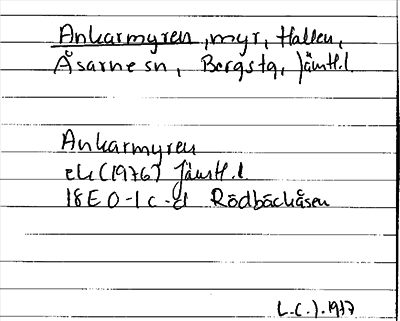 Ankarmyren, myr, Hallen,
Åsarne sn, Bergstg, Jämtl.l.
Ankarmyren
ek (1976) Jämtl.l
18E 0-1 c-d Rödbäckåsen
L.C.J. 1977